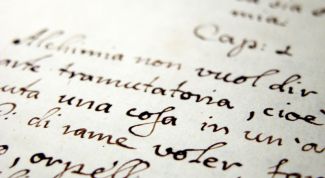 mia.
Cap: 1
Alchimia non vuol dir
arte tramutatoria, cioè
una cosa in un'a
di rame voler
o, orpell